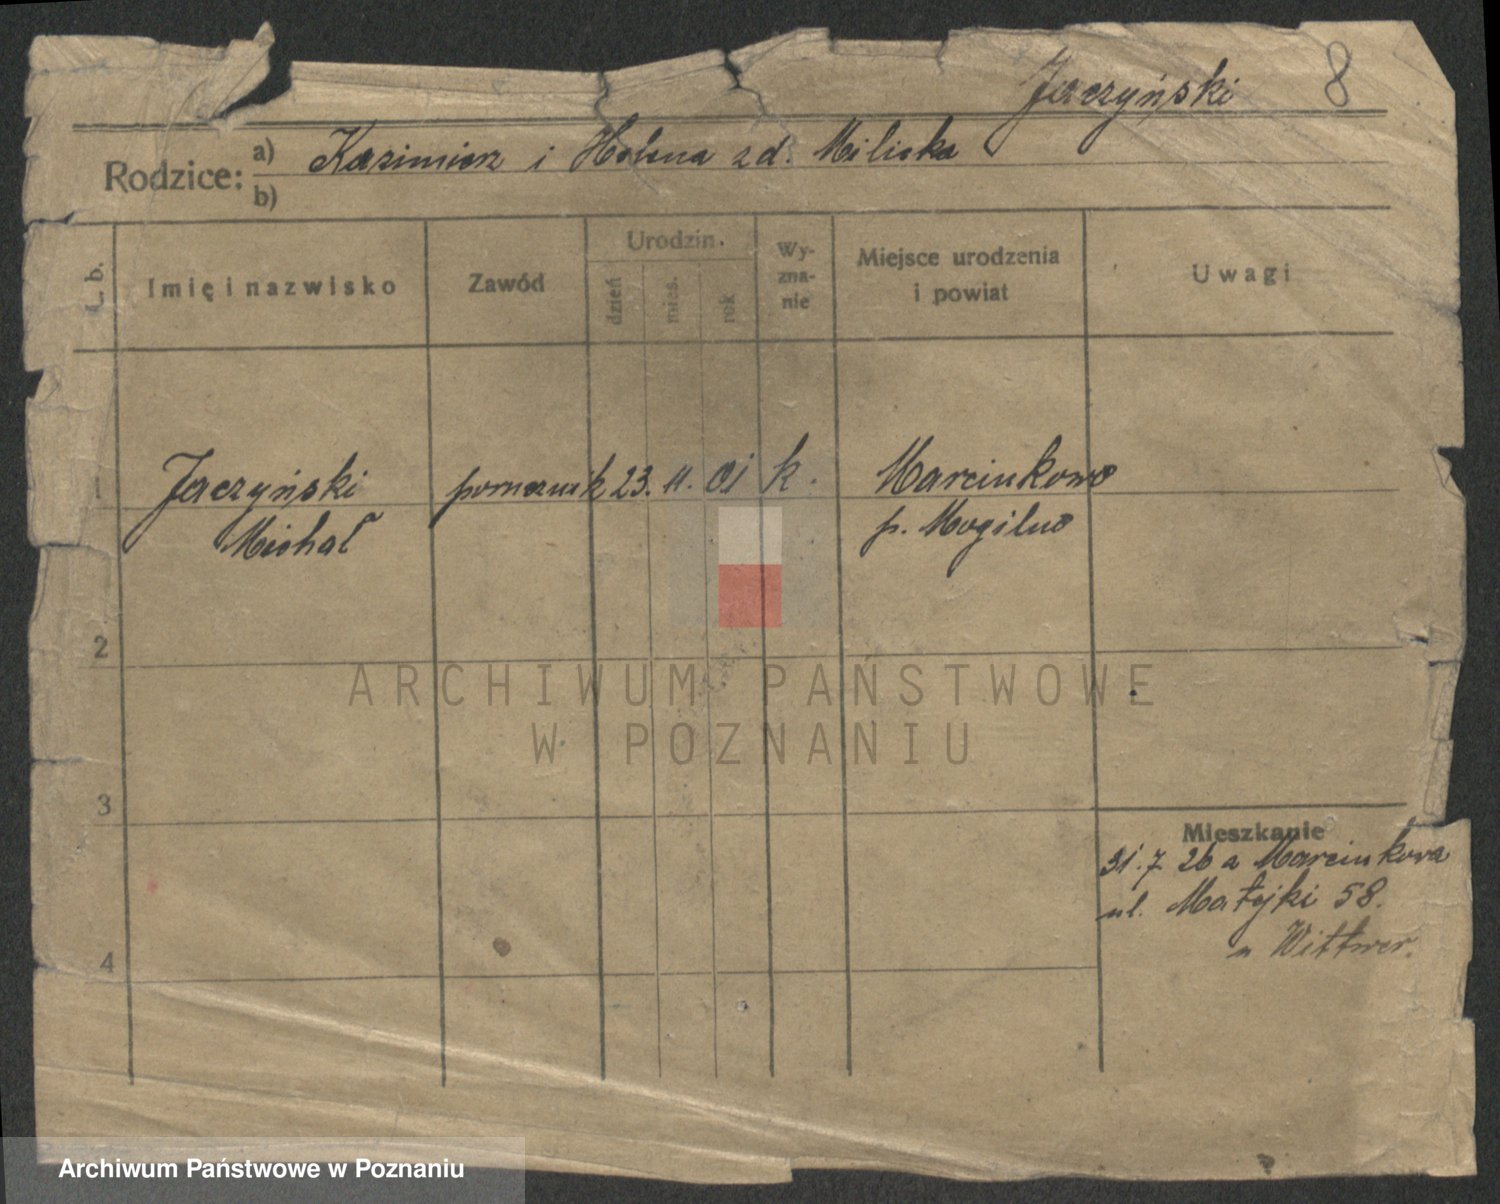 Jaczyński 8
Rodzice: a) Kazimierz i Helena zd. Milicka
b)
L. b. Imię i nazwisko Zawód Urodzin. dzień mies. rok Wy-zna-nie Miejsce urodzenia i powiat Uwagi
1 Jaczyński pomocnik 23. 11. 01 k. Marcinkowo
Michał p. Mogilno
2
ARCHIWUM PAŃSTWOWE
W POZNANIU
3
Mieszkanie
31.7.26 a Marcinkowa
ul. Matejki 58.
u Wittwer.
4
Archiwum Państwowe w Poznaniu